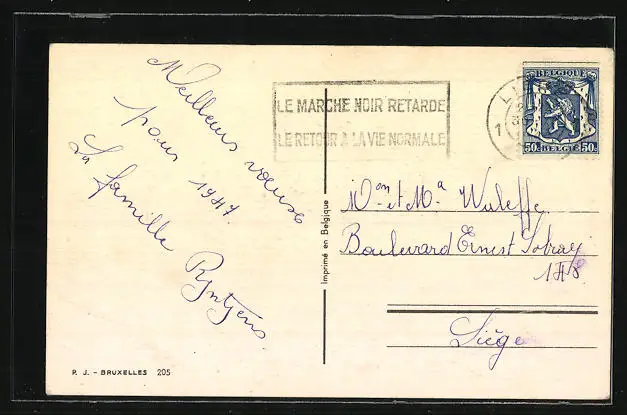 Meilleurs voeux
pour 1947.
La famille Ryntjens.
P. J. - BRUXELLES 205
Imprimé en Belgique
LE MARCHE NOIR RETARDE
LE RETOUR A LA VIE NORMALE
BELGIQUE
50c BELGIE 50c
Mon et Ma Waleffe
Boulevard Ernest Solvay
148
Liége